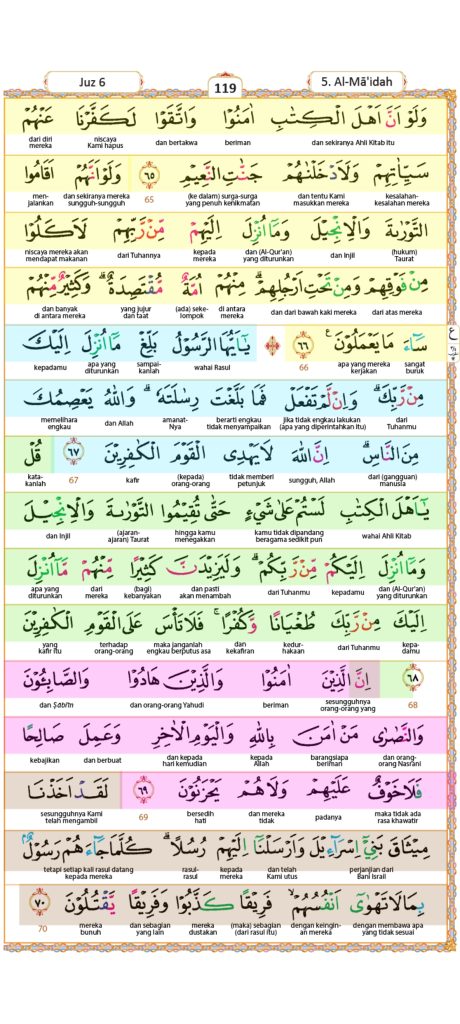 Juz 6 119 5. Al-Mā'idah
وَلَوْ اَنَّ اَهْلَ الْكِتٰبِ اٰمَنُوْا وَاتَّقَوْا لَكَفَّرْنَا عَنْهُمْ
dan sekiranya Ahli Kitab itu beriman dan bertakwa niscaya Kami hapus dari diri mereka
سَيِّاٰتِهِمْ وَلَاَدْخَلْنٰهُمْ جَنّٰتِ النَّعِيْمِ ٦٥ وَلَوْ اَنَّهُمْ اَقَامُوا
kesalahan-kesalahan mereka dan tentu Kami masukkan mereka (ke dalam) surga-surga yang penuh kenikmatan 65 dan sekiranya mereka sungguh-sungguh men-jalankan
التَّوْرٰىةَ وَالْاِنْجِيْلَ وَمَآ اُنْزِلَ اِلَيْهِمْ مِّنْ رَّبِّهِمْ لَاَكَلُوْا
(hukum) Taurat dan Injil dan (Al-Qur'an) yang diturunkan kepada mereka dari Tuhannya niscaya mereka akan mendapat makanan
مِنْ فَوْقِهِمْ وَمِنْ تَحْتِ اَرْجُلِهِمْۗ مِنْهُمْ اُمَّةٌ مُّقْتَصِدَةٌۗ وَكَثِيْرٌ مِّنْهُمْ
dari atas mereka dan dari bawah kaki mereka di antara mereka (ada) seke-lompok yang jujur dan taat dan banyak di antara mereka
سَاۤءَ مَا يَعْمَلُوْنَ ࣖ ٦٦ يٰٓاَيُّهَا الرَّسُوْلُ بَلِّغْ مَآ اُنْزِلَ اِلَيْكَ
sangat buruk apa yang mereka kerjakan 66 wahai Rasul sampai-kanlah apa yang diturunkan kepadamu
مِنْ رَّبِّكَۗ وَاِنْ لَّمْ تَفْعَلْ فَمَا بَلَّغْتَ رِسٰلَتَهٗۗ وَاللّٰهُ يَعْصِمُكَ
dari Tuhanmu jika tidak engkau lakukan (apa yang diperintahkan itu) berarti engkau tidak menyampaikan amanat-Nya dan Allah memelihara engkau
مِنَ النَّاسِۗ اِنَّ اللّٰهَ لَا يَهْدِى الْقَوْمَ الْكٰفِرِيْنَ ٦٧ قُلْ
dari (gangguan) manusia sungguh, Allah tidak memberi petunjuk (kepada) orang-orang kafir 67 kata-kanlah
يٰٓاَهْلَ الْكِتٰبِ لَسْتُمْ عَلٰى شَيْءٍ حَتّٰى تُقِيْمُوا التَّوْرٰىةَ وَالْاِنْجِيْلَ
wahai Ahli Kitab kamu tidak dipandang beragama sedikit pun hingga kamu menegakkan (ajaran-ajaran) Taurat dan Injil
وَمَآ اُنْزِلَ اِلَيْكُمْ مِّنْ رَّبِّكُمْۗ وَلَيَزِيْدَنَّ كَثِيْرًا مِّنْهُمْ مَّآ اُنْزِلَ
dan (Al-Qur'an) yang diturunkan kepadamu dari Tuhanmu dan pasti akan menambah (bagi) kebanyakan dari mereka apa yang diturunkan
اِلَيْكَ مِنْ رَّبِّكَ طُغْيَانًا وَّكُفْرًاۚ فَلَا تَأْسَ عَلَى الْقَوْمِ الْكٰفِرِيْنَ
kepa-damu dari Tuhanmu kedur-hakaan dan kekafiran maka janganlah engkau berputus asa terhadap orang-orang yang kafir itu
٦٨ اِنَّ الَّذِيْنَ اٰمَنُوْا وَالَّذِيْنَ هَادُوْا وَالصَّابِـُٔوْنَ
68 sesungguhnya orang-orang yang beriman dan orang-orang Yahudi dan Ṣabi'in
وَالنَّصٰرٰى مَنْ اٰمَنَ بِاللّٰهِ وَالْيَوْمِ الْاٰخِرِ وَعَمِلَ صَالِحًا
dan orang-orang Nasrani barangsiapa berimari kepada Allah dan kepada hari kemudian dan berbuat kebajikan
فَلَا خَوْفٌ عَلَيْهِمْ وَلَا هُمْ يَحْزَنُوْنَ ٦٩ لَقَدْ اَخَذْنَا
maka tidak ada rasa khawatir padanya dan mereka tidak bersedih hati 69 sesungguhnya Kami telah mengambil
مِيْثَاقَ بَنِيْٓ اِسْرَاۤءِيْلَ وَاَرْسَلْنَآ اِلَيْهِمْ رُسُلًاۗ كُلَّمَا جَاۤءَهُمْ رَسُوْلٌۢ
perjanjian dari Bani Israil dan telah Kami utus kepada mereka rasul-rasul tetapi setiap kali rasul datang kepada mereka
بِمَا لَا تَهْوٰٓى اَنْفُسُهُمْۙ فَرِيْقًا كَذَّبُوْا وَفَرِيْقًا يَّقْتُلُوْنَ ٧٠
dengan membawa apa yang tidak sesuai dengan keingin-an mereka (maka) sebagian (dari rasul itu) mereka dustakan dan sebagian yang lain mereka bunuh 70